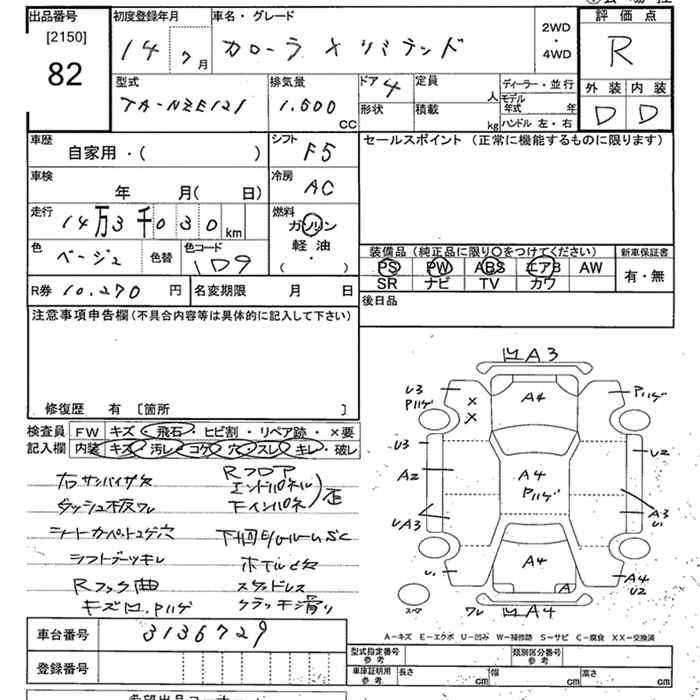 出品番号 初度登録年月 車名・グレード 評価点
[2150]
82
14 7月 カローラ X リミテッド 2WD ・ 4WD R
型式 排気量 ドア 4 定員 人 ディーラー・並行 外装 内装
TA-NZE121 1.500 CC 形状 積載 kg モデル年式 年 D D
ハンドル 左・右
車歴 シフト セールスポイント (正常に機能するものに限ります)
自家用・( ) F5
車検 年 月( 日) 冷房 AC
走行 14万3千030km 燃料 ガソリン 軽油 ( ・ )
色 ベージュ 色替 色コード 1D9
装備品 (純正品に限り○をつけてください) 新車保証書
PS PW ABS エアB AW 有・無
SR ナビ TV カワ
R券 10.270 円 名変期限 月 日 後日品
注意事項申告欄(不具合内容等は具体的に記入して下さい)
修復歴 有 [箇所 ]
検査員 FW キズ・飛石・ヒビ割・リペア跡・×要
記入欄 内装 キズ・汚レ・コゲ・穴・スレ・キレ・破レ
右サンバイザ欠 Rフロア
エンドパネル
ダッシュ板ワレ
シートカーペットコゲ穴
シフトブーツキレ
Rフック曲 スタッドレス
クラッチ滑り
A3
U3 Pハゲ A4 Pハゲ
U3 U2
A2 A4 Pハゲ
UA3 A3 U1
U1 A4 A4 U2
A
スペア ワレ A4
A-キズ E-エクボ U-凹み W-補修跡 S-サビ C-腐食 XX-交換済
車台番号 3136729
登録番号
型式指定番号 参考 類別区分番号 参考
車庫証明用 参考 長さ cm 幅 cm 高さ cm